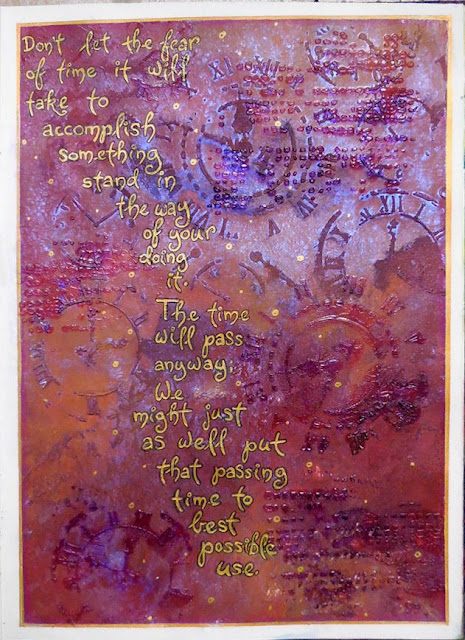 Don't let the fear
of time it will
take to
accomplish
something
stand in
the way
of your
doing
it.
The time
will pass
anyway;
We
might just
as well put
that passing
time to
best
possible
use.